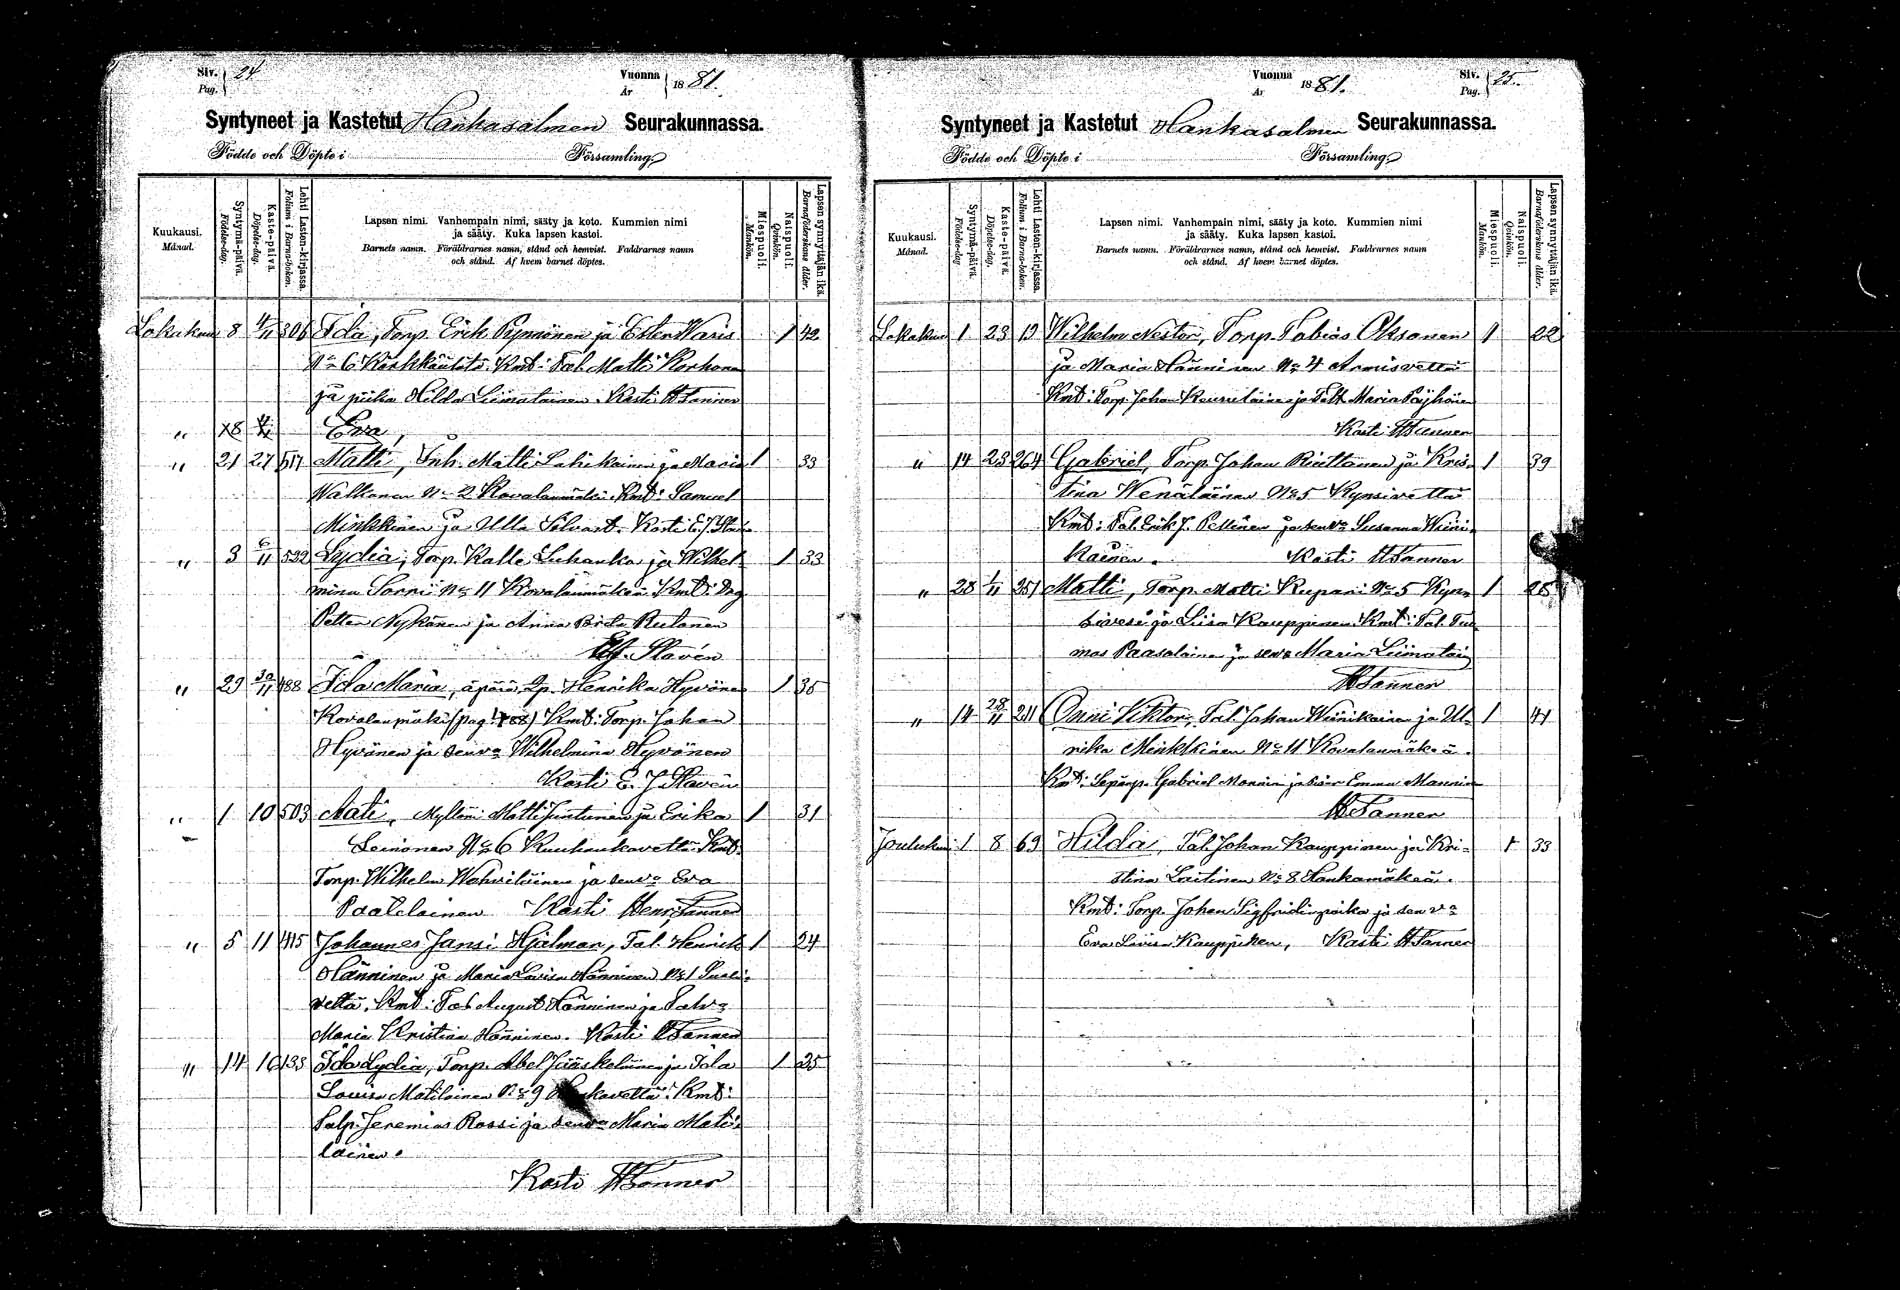 Siv. 24
Pag.
Vuonna 1881.
År
Syntyneet ja Kastetut Hankasalmen Seurakunnassa.
Födde och Döpte i Församling
Kuukausi.
Månad.
Syntymä-päivä.
Födelse-dag.
Kaste-päivä.
Döpelse-dag.
Lehti Lasten-kirjassa.
Folium i Barna-boken.
Lapsen nimi. Vanhempain nimi, sääty ja koto. Kummien nimi
ja sääty. Kuka lapsen kastoi.
Barnets namn. Föräldrarnes namn, stånd och hemvist. Faddrarnes namn
och stånd. Af hvem barnet döptes.
Miespuoli.
Mankön.
Naispuoli.
Qvinkön.
Lapsen synnyttäjän ikä.
Barnaföderskans ålder.
Lokakuu 8 4/11 306 Ida, Torp. Erik Pynnönen ja Ester Waris 1 42
No 6 Kmt: Tal. Matti Korhonen
ja piika Hilda Liimatainen. Kasti HTanner
" 8 Eva,
" 21 27 517 Matti, Inh. Matti Lahikainen ja Maria 1 33
Walkonen No 2 Kovalanmäki. Kmt: Samuel
Minkkinen ja Ulla Silvast. Kasti E. J. Stavén
" 3 6/11 532 Lydia, Torp. Kalle Luhanka ja Wilhel- 1 33
mina Sorri No 11 Kovalanmäkeä. Kmt: Drg
Petter Nykänen ja Anna Brita Rutanen
EJ. Stavén
" 29 30/11 488 Ida Maria, äpärä, Henrika Hyvönen 1 35
Kovalanmäki (pag. 488) Kmt: Torp. Johan
Hyvönen ja senva Wilhelmina Hyvönen
Kasti E. J. Stavén
" 1 10 503 Mati, Mylläri Matti Juntunen ja Erika 1 31
Leinonen No 6 Kuuhankavettä. Kmt:
Torp. Wilhelm Wahvilainen ja senva Eva
Paatelainen Kasti Henr. Tanner
" 5 11 415 Johannes Jansi Hjalmar, Tal. Henrik 1 24
Hänninen ja Maria Lovisa Hänninen No 1
vettä. Kmt: Tal. August Hänninen ja Talva
Maria Kristina Hänninen. Kasti HTanner
" 14 16 133 Ida Lydia, Torp. Abel Jääskeläinen ja Ida 1 25
Lovisa Matilainen No 9 Kmt:
Talp. Jeremias Rossi ja senva Maria Mati-
lainen.
Kasti HTanner
Vuonna 1881.
År
Siv. 25.
Pag.
Syntyneet ja Kastetut Hankasalmen Seurakunnassa.
Födde och Döpte i Församling
Kuukausi.
Månad.
Syntymä-päivä.
Födelse-dag
Kaste-päivä.
Döpelse-dag.
Lehti Lasten-kirjassa.
Folium i Barna-boken.
Lapsen nimi. Vanhempain nimi, sääty ja koto. Kummien nimi
ja sääty. Kuka lapsen kastoi.
Barnets namn. Föräldrarnes namn, stånd och hemvist. Faddrarnes namn
och stånd. Af hvem barnet döptes.
Miespuoli.
Mankön.
Naispuoli.
Qvinkön.
Lapsen synnyttäjän ikä.
Barnaföderskans ålder.
Lokakuu 1 23 19 Wilhelm Nestor, Torp. Tobias Oksanen 1 22
ja Maria Hänninen No 4 Armisvettä
Kmt: Torp. Johan ja Maria Päyhönen
Kasti HTanner
" 14 23 264 Gabriel, Torp. Johan Riettanen ja Kris- 1 39
tina Wenäläinen No 5 Kynsivettä
Kmt: Tal. Erik J. Pellinen ja senva Susanna Wiini-
kainen. Kasti HTanner
" 28 1/11 251 Matti, Torp. Matti Kupari No 5 Kyn- 1 28
sivesi ja Liisa Kauppinen. Kmt: Tal. Tuo-
mas Paasolainen ja senva Maria Liimatain
HTanner
" 14 28/11 211 Onni Viktor, Tal. Johan Wiinikainen ja Ul- 1 41
rika Minkkinen No 11 Kovalanmäkeä.
Kmt: Gabriel Manninen ja Emma Manninen
HTanner
Joulukuu 1 8 69 Hilda, Tal. Johan Kauppinen ja Kri- 1 33
stina Laitinen No 8 Hankamäkeä.
Kmt: Torp. Johan Sigfridinpoika ja senva
Eva Lovisa Kauppinen, Kasti HTanner